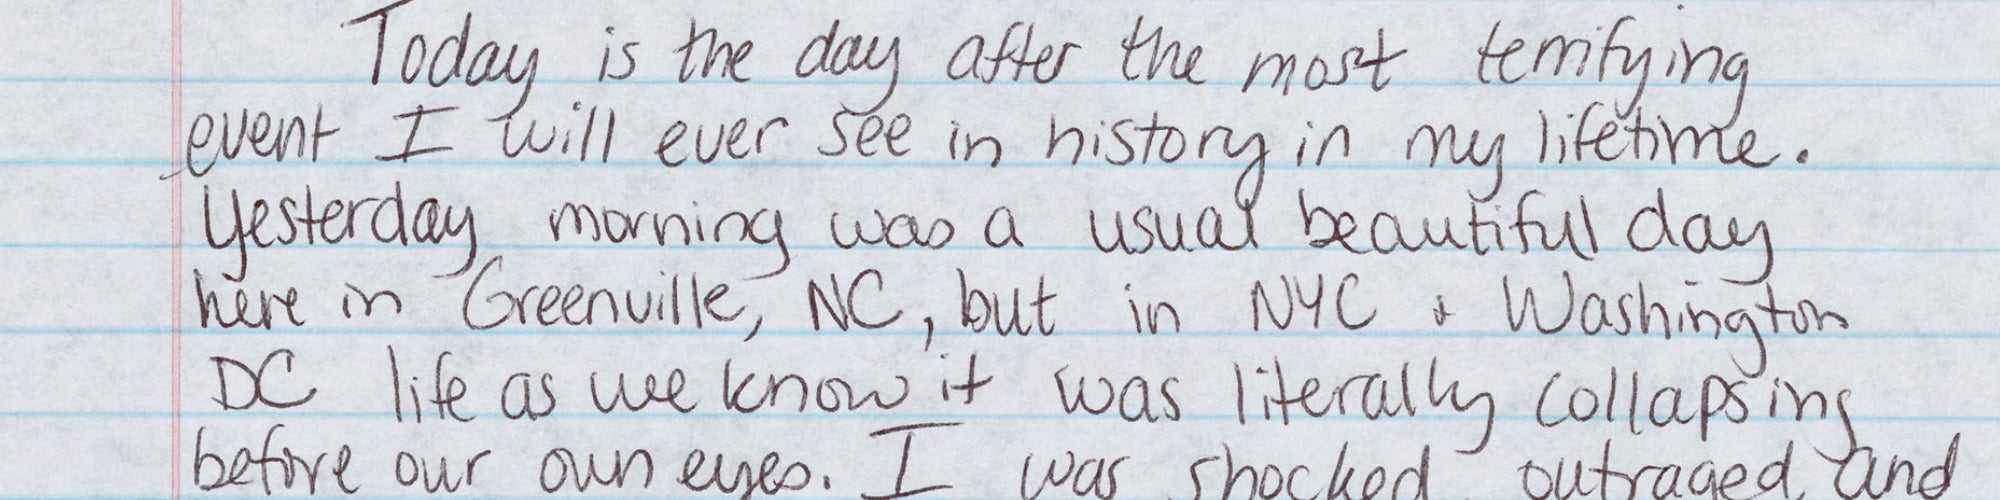 Today is the day after the most terrifying
event I will ever see in history in my lifetime.
Yesterday morning was a usual beautiful day
here in Greenville, NC, but in NYC & Washington
DC life as we know it was literally collapsing
before our own eyes. I was shocked, outraged, and